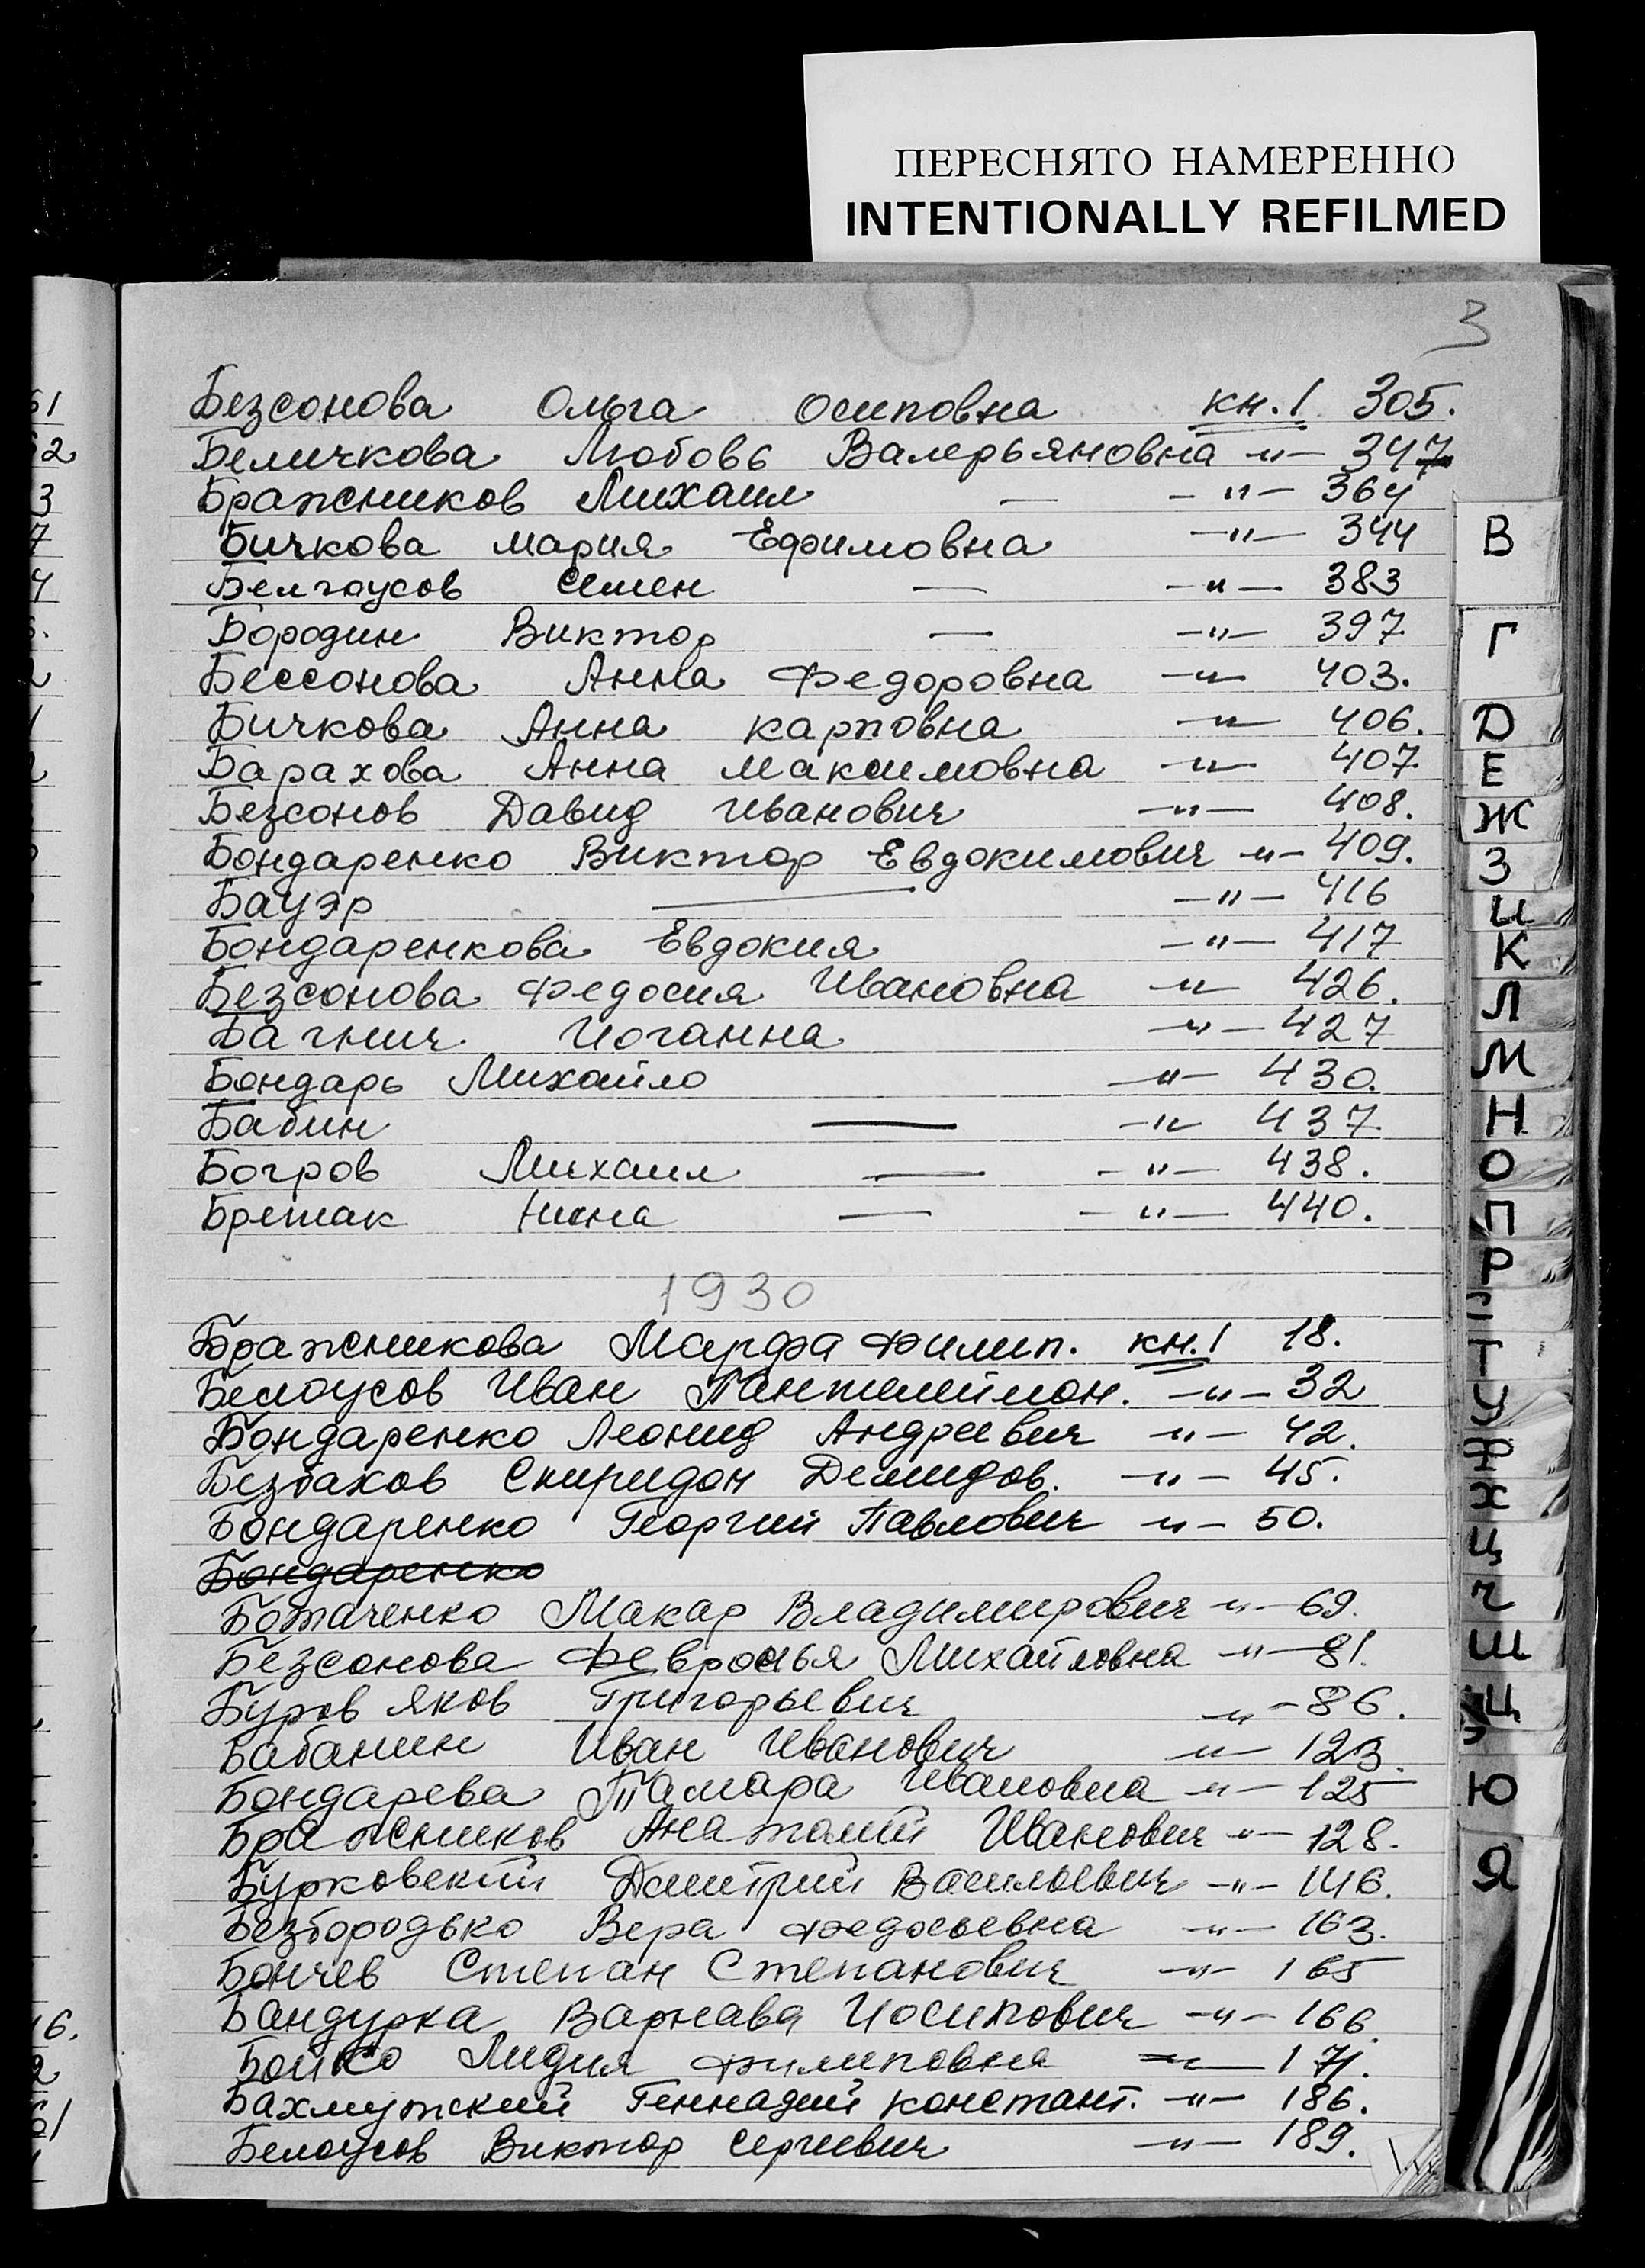 ПЕРЕСНЯТО НАМЕРЕННО
INTENTIONALLY REFILMED
3
Безсонова Ольга Осиповна кн. 1 305.
Беличкова Любовь Валерьяновна —"— 347
Бражников Михаил — —"— 364
Бичкова Мария Ефимовна —"— 344
Белгоусов Семен — —"— 383
Бородин Виктор — —"— 397
Бессонова Анна Федоровна —"— 403.
Бичкова Анна Карповна —"— 406.
Барахова Анна Максимовна —"— 407.
Безсонов Давид Иванович —"— 408.
Бондаренко Виктор Евдокимович —"— 409.
Бауэр — —"— 416
Бондаренкова Евдокия —"— 417
Безсонова Федосия Ивановна —"— 426.
Багнич Иоганна —"— 427
Бондарь Михайло —"— 430.
Бабин — —"— 437
Богров Михаил — —"— 438.
Бретак Нина — —"— 440.
1930
Бражникова Марфа Филип. кн. 1 18.
Белоусов Иван Пантелеймон. —"— 32
Бондаренко Леонид Андреевич —"— 42.
Безбахов Спиридон Демидов. —"— 45.
Бондаренко Георгий Павлович —"— 50.
Бондаренко
Ботаченко Макар Владимирович —"— 69.
Безсонова Февронья Михайловна —"— 81.
Буров Яков Григорьевич —"— 86.
Бабанин Иван Иванович —"— 123.
Бондарева Тамара Ивановна —"— 125
Бражников Анатолий Иванович —"— 128.
Бурковский Дмитрий Васильевич —"— 146.
Безбородько Вера Федосьевна —"— 163.
Бончев Степан Степанович —"— 165
Бандурка Варнава Иосипович —"— 166.
Бойко Лидия Филиповна —"— 171.
Бахмутский Геннадий Констант. —"— 186.
Белоусов Виктор Сергиевич —"— 189.
В
Г
Д
Е
Ж
З
И
К
Л
М
Н
О
П
Р
Т
У
Ф
Х
Ц
Ч
Ш
Щ
Ю
Я